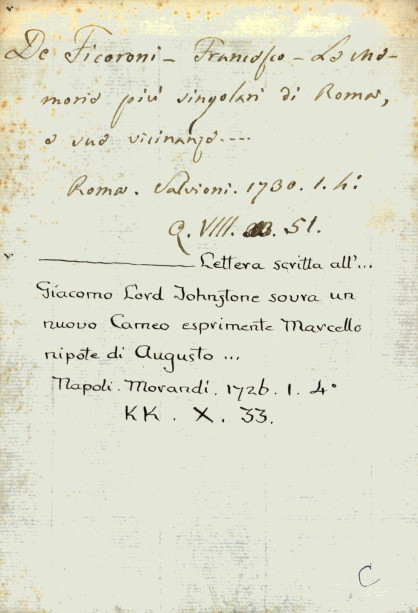 De Ficoroni - Francesco - Le Me-
morie più singolari di Roma,
e sue vicinanze....
Roma. Salvioni. 1730. 1. 4:
Q. VIII. 51.
Lettera scritta all'...
Giacomo Lord Johnstone sovra un
nuovo Cameo esprimente Marcello
nipote di Augusto ...
Napoli. Morandi. 1726. 1. 4°
KK. X. 33.
C